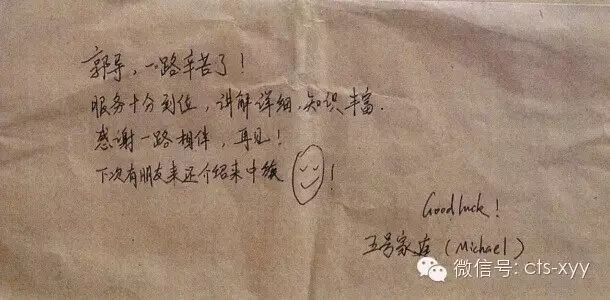 郭导，一路辛苦了！
服务十分到位，讲解详细，知识丰富.
感谢一路相伴，再见！
下次有朋友来还介绍来中旅！
Good luck！
五号家庭（Michael）
微信号: cts-xyy